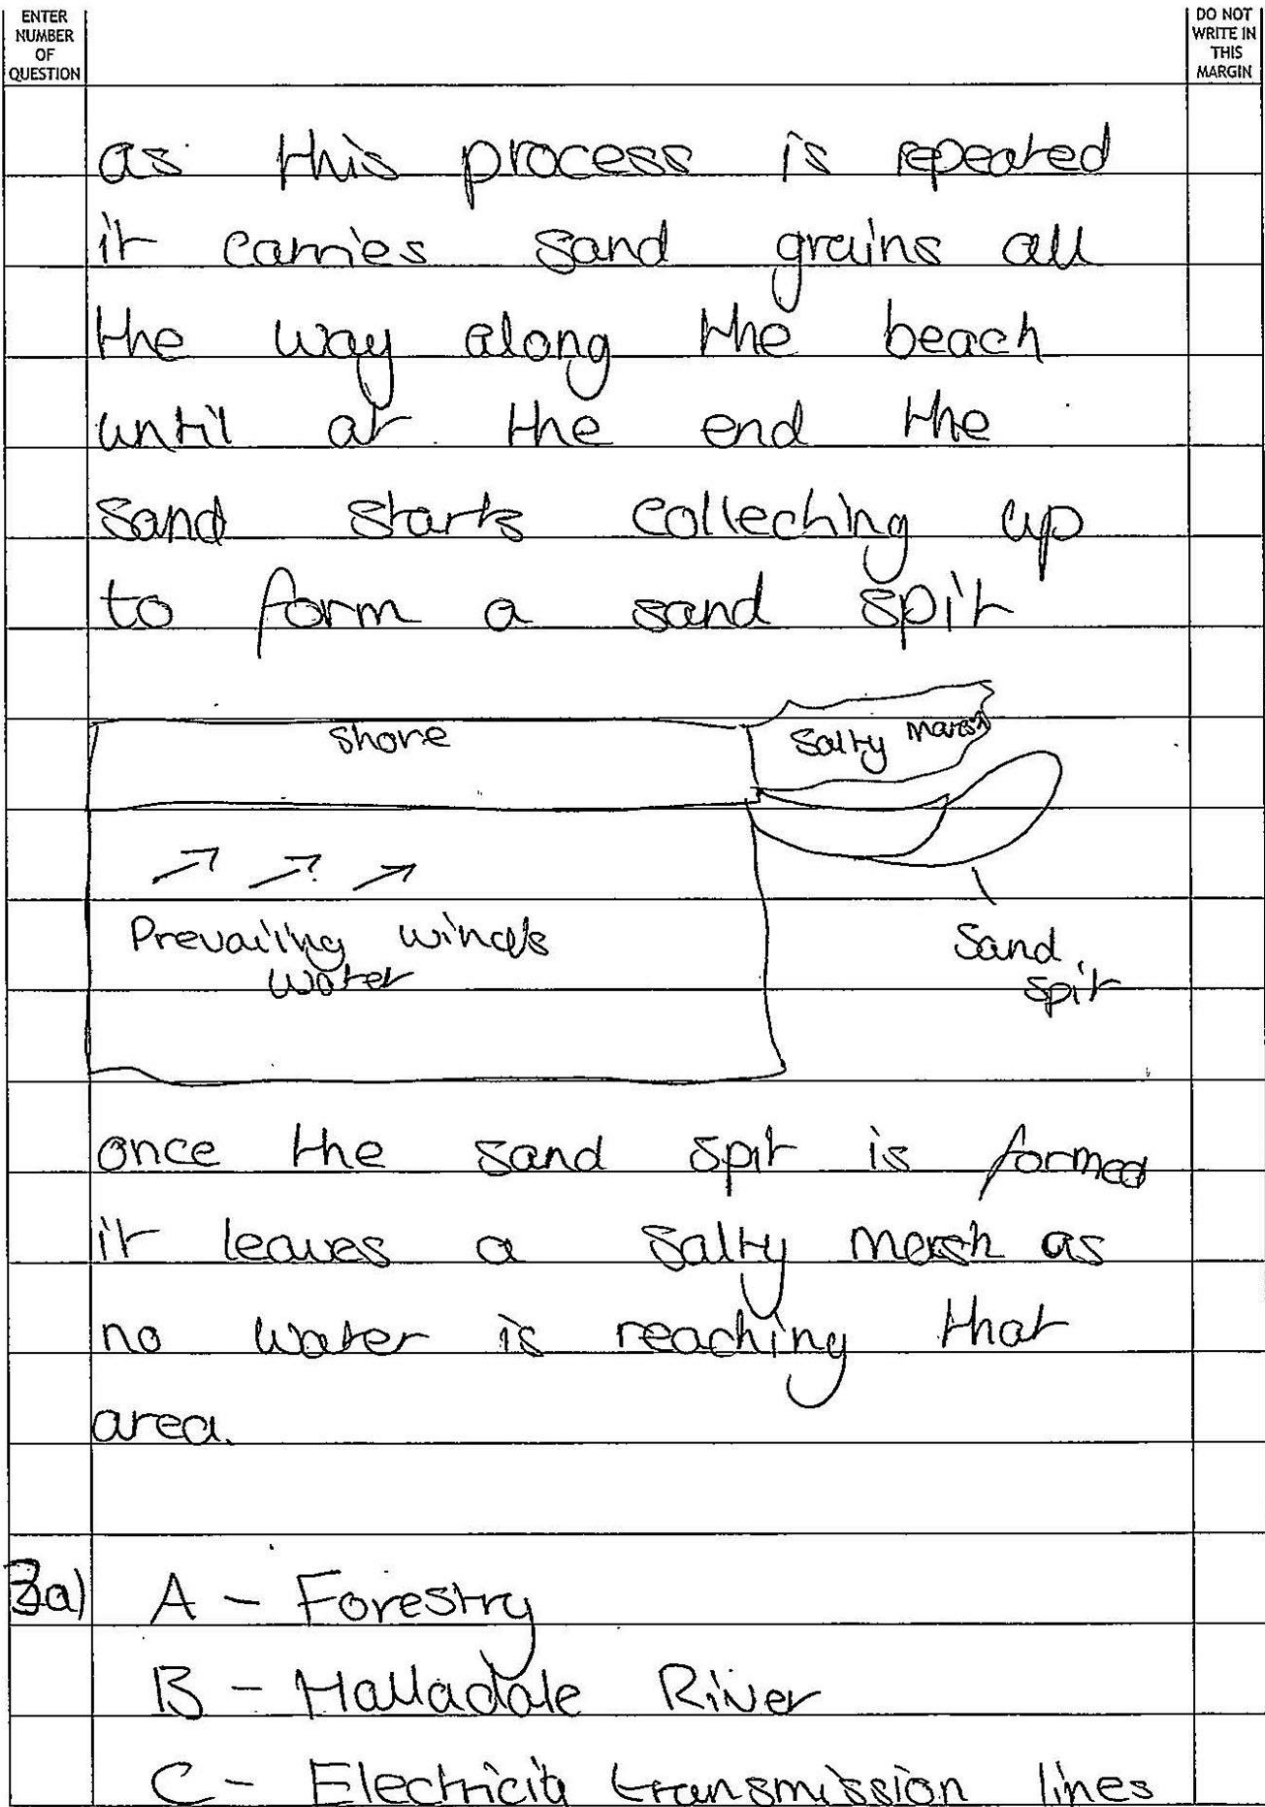 ENTER
NUMBER
OF
QUESTION
DO NOT
WRITE IN
THIS
MARGIN
as this process is repeated
it carries sand grains all
the way along the beach
until at the end the
sand starts collecting up
to form a sand spit
shore
Salty marsh
Prevailing winds
water
Sand
spit
once the sand spit is formed
it leaves a salty marsh as
no water is reaching that
area.
3a) A - Forestry
B - Halladale River
C - Electricity transmission lines